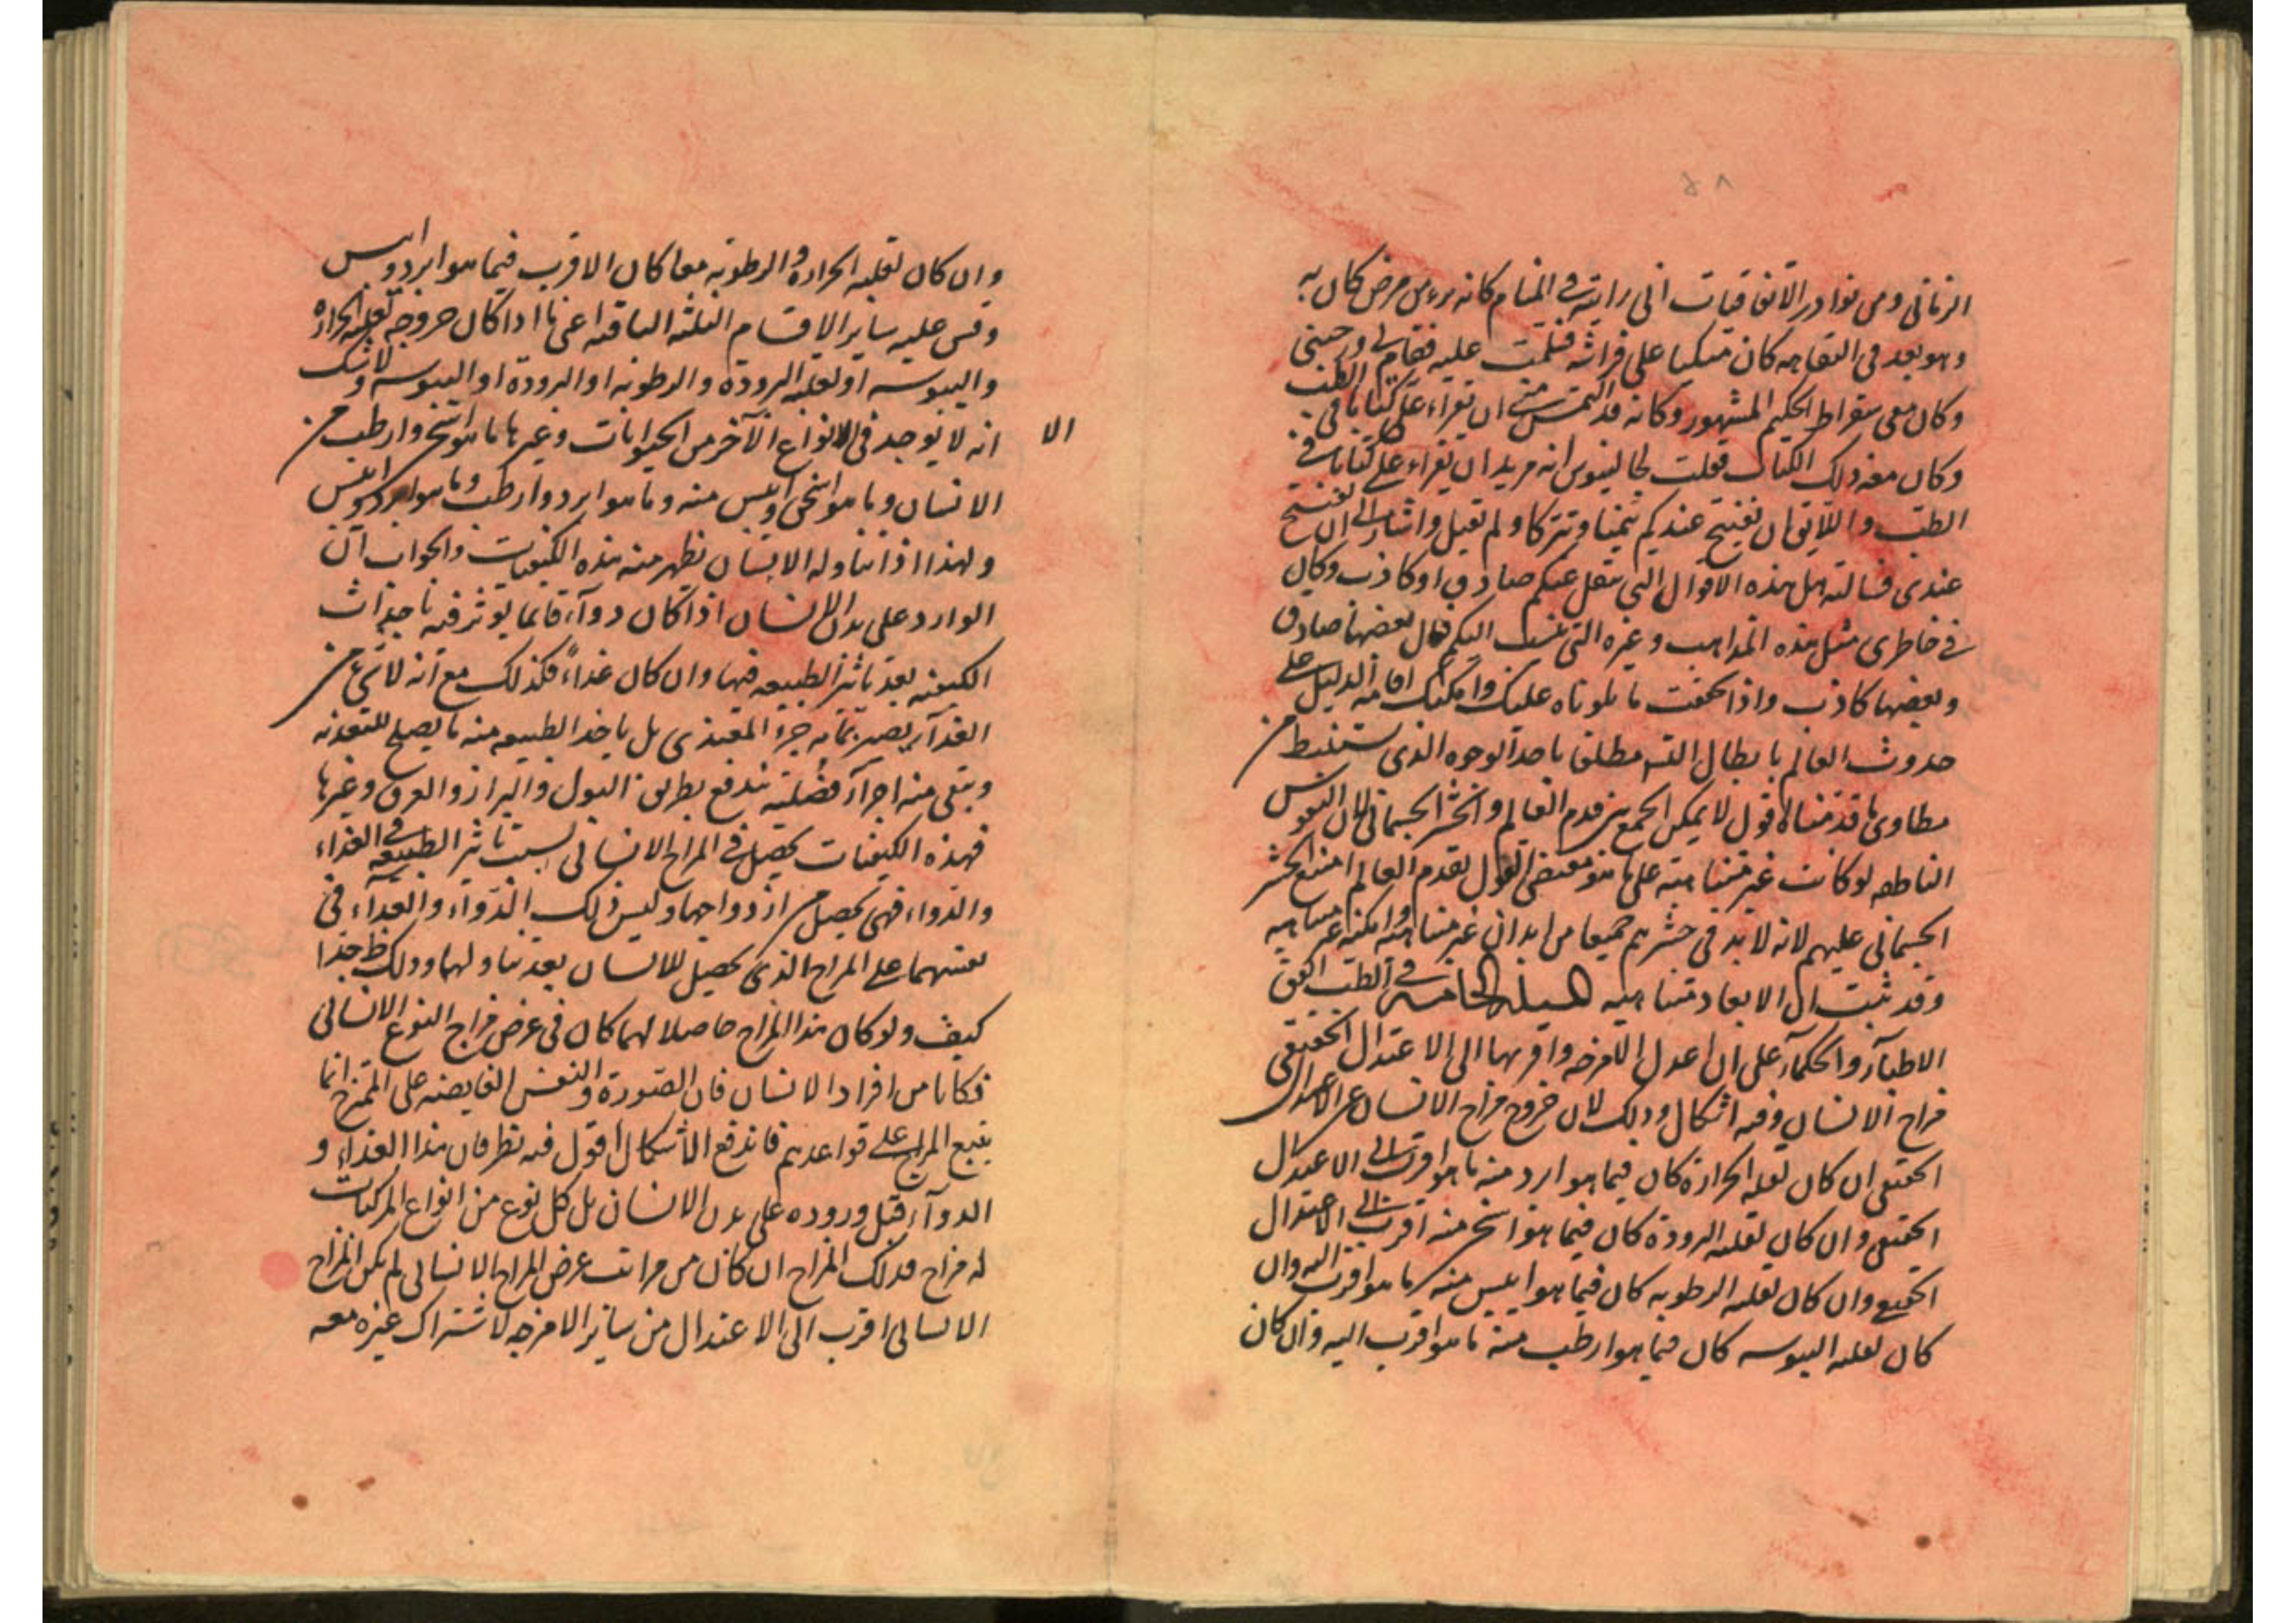 الزمانى ومن نوادر الاتفاقيات انى رايته فى المنام كانه برء من مرض كان به
وهو بعد فى النقاهه كان متكيا على فراشه فسلمت عليه فقام لى ورحبنى
وكان معى سقراط الحكيم المشهور وكانه قد التمس منى ان تقراء على كتابا فى الطب
وكان معه ذلك الكتاب فقلت لجالينوس انه يريد ان يقراء على كتابا فى
الطب و ان تفتتح عندكم تيمنا وتبركا ولم تقبل واشار الى ان تفتتح
عندى فسالته هل هذه الاقوال التى ينقل عنكم صادق او كاذب وكان
فى خاطرى مثل هذه المذاهب وغيره التى ينسب اليكم فقال بعضها صادق
وبعضها كاذب واذا تحققت ما تلوناه عليك وامكنك اقامه الدليل على
حدوث العالم بابطال التس مطلقا باحد الوجوه الذى يستنبط من
مطاوى ما قدمناه اقول لا يمكن الجمع بين قدم العالم والحشر الجسمانى لان النفوس
الناطقه لو كانت غير متناهيه على ما هو مقتضى القول بقدم العالم امتنع الحشر
الجسمانى عليهم لانه لا بد فى حشرهم جميعا من ابدان غير متناهيه وامكنه غير متناهيه
وقد ثبت ان الابعاد متناهيه المسئلة الخامسة فى الطب اتفق
الاطباء والحكماء على ان اعدل الامزجه واقربها الى الاعتدال الحقيقى
مزاج الانسان وفيه اشكال وذلك لان خروج مزاج الانسان عن الاعتدال
الحقيقى ان كان لغلبه الحرارة كان فيما هو ابرد منه ما هو اقرب الى الاعتدال
الحقيقى وان كان لغلبه البرودة كان فيما هو اسخن منه اقرب الى الاعتدال
الحقيقى وان كان لغلبه الرطوبه كان فيما هو ايبس منه ما هو اقرب اليه وان
كان لغلبه اليبوسه كان فيما هو ارطب منه ما هو اقرب اليه وان كان
وان كان لغلبه الحرارة والرطوبه معا كان الاقرب فيما هو ابرد وايبس
وقس عليه ساير الاقسام الثلثه الباقيه اعنى ما اذا كان خروجه لغلبه الحرارة
واليبوسه او لغلبه البرودة والرطوبه او البرودة او اليبوسه ولا شك
انه لا يوجد فى الانواع الآخر من الحيوانات وغيرها ما هو اسخن وارطب من
الا
الانسان وما هو اسخن وايبس منه وما هو ابرد وارطب وما هو ابرد وايبس
ولهذا اذا تناوله الانسان يظهر منه هذه الكيفيات والجواب ان
الوارد على بدن الانسان اذا كان دوآء فانما يوثر فيه باحداث
الكيفيه بعد تاثير الطبيعه فيها وان كان غذاءً فكذلك مع انه لا شئ من
الغذآء يصير بتمامه جزء المغتذى بل ياخذ الطبيعه منه ما يصلح للتغذيه
ويبقى منه اجزآء فضليه تندفع بطريق البول والبراز والعرق وغيرها
فهذه الكيفيات تحصل فى المزاج الانسانى بسبب تاثير الطبيعه فى الغذاء
والدواء فهى تحصل من ازدواجهما وليس ذلك الدوآء والغذآء فى
نفسهما على المزاج الذى يحصل للانسان بعد تناولهما وذلك ظ جدا
كيف ولو كان هذا المزاج حاصلا لهما كان فى عرض مزاج النوع الانسانى
فكانا من افراد الانسان فان الصورة والنفس الفايضه على الممتزج انما
يتبع المزاج على قواعدهم فاندفع الاشكال اقول فيه نظر فان هذا الغذاء و
الدوآء قبل وروده على بدن الانسان بل كل نوع من انواع المركبات
له مزاج فذلك المزاج ان كان من مراتب عرض المزاج الانسانى لم يكن المزاج
الانسانى اقرب الى الاعتدال من ساير الامزجه لاشتراك غيره معه